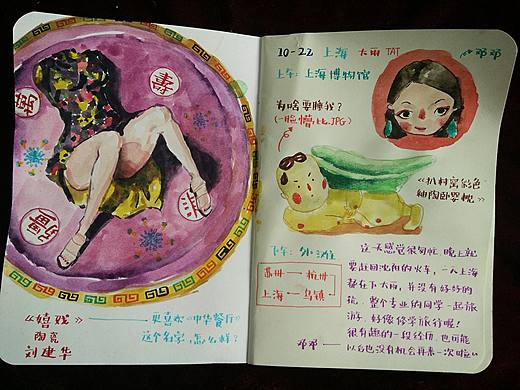 《嬉戏》——更喜欢《中华餐厅》
陶瓷 这个名字,怎么样?
刘建华
10-22 上海 大雨 TAT
邓邓
上午:上海博物馆
为啥要睡我?
(一脸懵比.JPG)
《扒村窑彩色
釉陶卧婴枕》
下午:外滩
苏州——杭州
上海——乌镇
邓邓
这天感觉很匆忙 晚上就
要赶回沈阳的火车,一入上海
都在下大雨,并没有好好的
玩。整个专业的同学一起旅
游,好像修学旅行呢!
很有趣的一段经历,也可能
以后也没有机会再来一次啦~